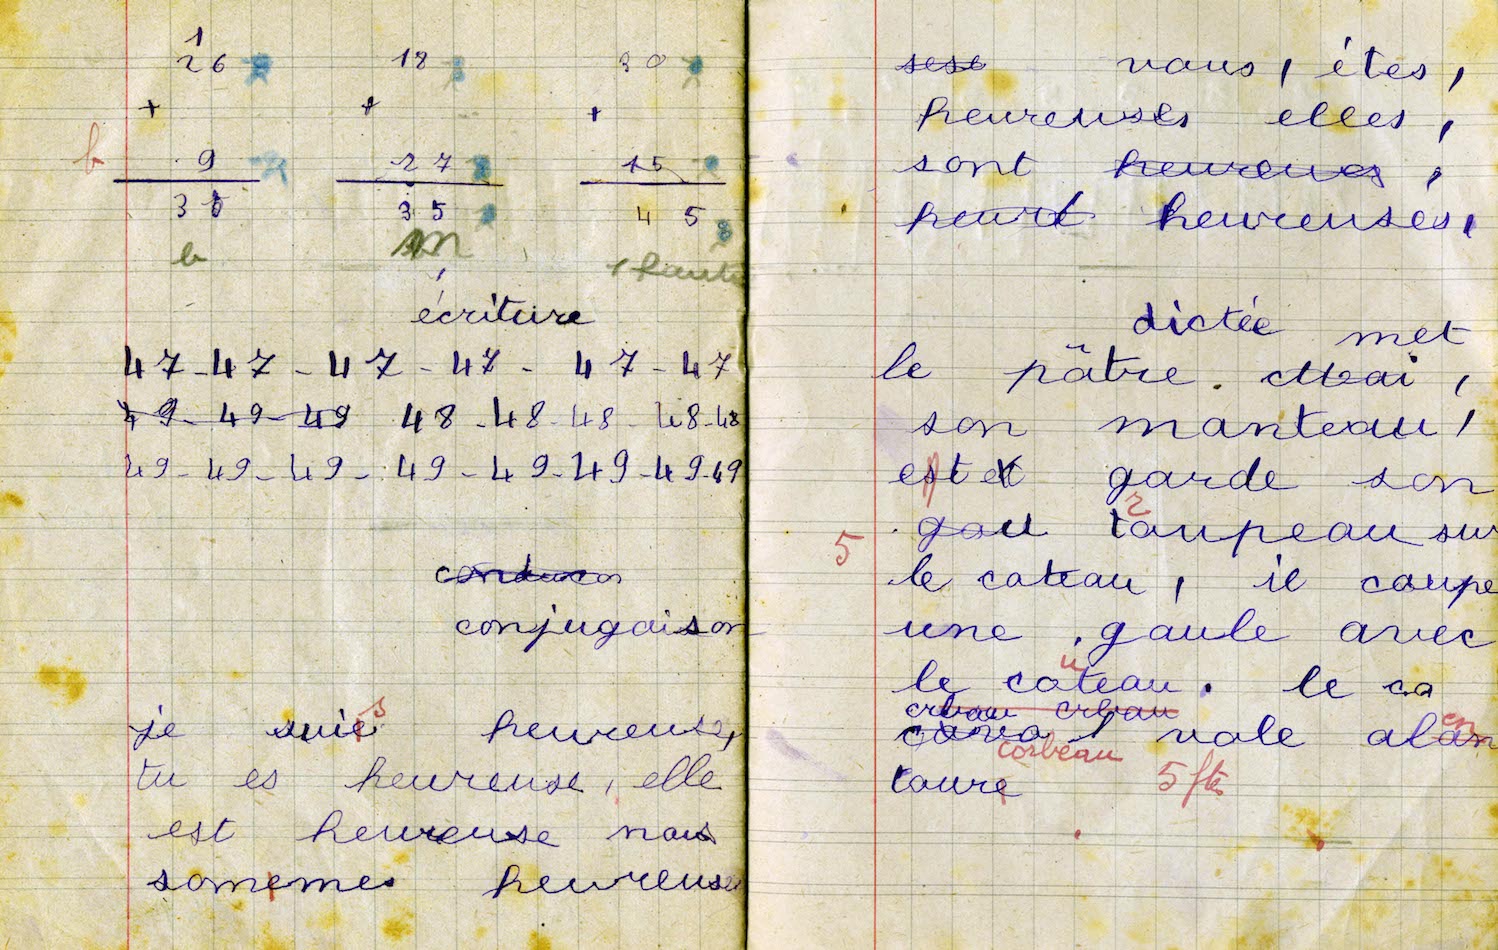 1
26 18 30
+ + +
b 9 27 15
35 35 45
b m 1 faute
écriture
47-47-47-47-47-47
49-49-49 48-48-48-48-48
49-49-49-49-49-49-49-49
conjugaison
je suie s heureuse,
tu es heureuse, elle
est heureuse nous
somemes heureuses
sese vous, êtes,
heureuses elles,
sont heureues,
heure heureuses,
dictée met
le pâtre. Moi,
son manteau,
est et garde son
gau taupeau sur
r
5
le coteau, il coupe
une gaule avec
u
le coteau. le co
crbau crbau
vole alan
en
corbeau
toure 5 ftes